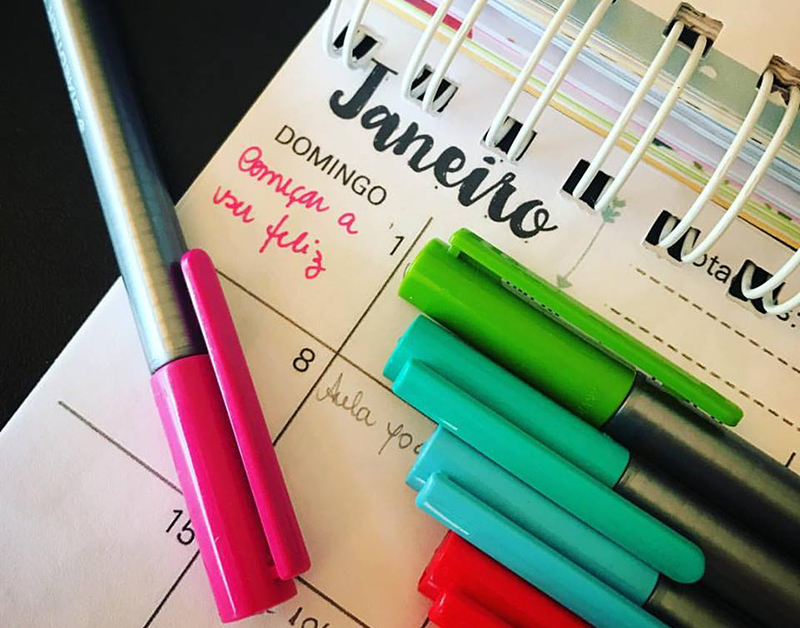 Janeiro
DOMINGO
Começar a
ser feliz
1
8
Aula
15